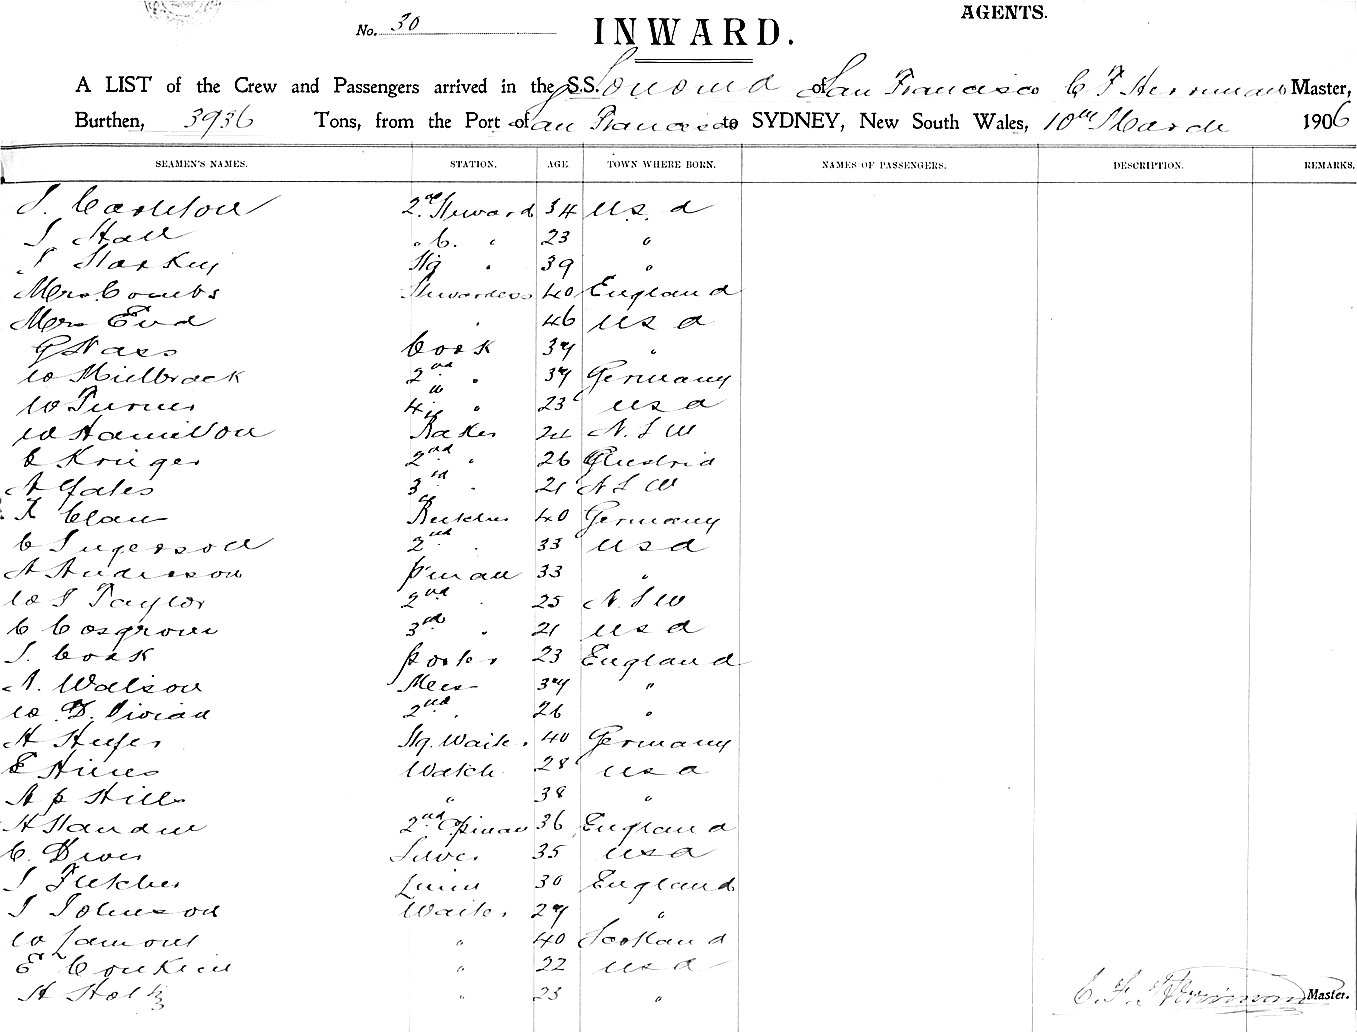 AGENTS.
No. 30
INWARD.
A LIST of the Crew and Passengers arrived in the S.S. Sonoma of San Francisco C F Herriman Master,
Burthen, 3936 Tons, from the Port of San Francisco to SYDNEY, New South Wales, 10th March 1906
SEAMEN'S NAMES. STATION. AGE. TOWN WHERE BORN. NAMES OF PASSENGERS. DESCRIPTION. REMARKS.
2nd Steward 34 U.S.A
Hall " C. " 23 "
J Starkey Stg " 39 "
Mrs Combs Stewardess 40 England
Mrs " 46 USA
G Nass Cook 37 "
W Mielbrack 2nd " 37 Germany
W Turner 4th " 23 USA
W Hamilton Baker 24 N.S.W
C Krieger 2nd " 26 Austria
A Yates 3rd " 21 N S W
Butcher 40 Germany
C Ingersoll 2nd " 33 USA
A Anderson P'man 33 "
W J Taylor 2nd " 25 N.S.W
C Cosgrove 3rd " 21 USA
J. Cook Porter 23 England
A. Watson Mess 37 "
W D. Vivian 2nd " 26 "
H Stg. Waiter 40 Germany
E Hines Watch 28 USA
A P Hills " 38 "
H Standen 2nd P'man 36 England
C. Silver 35 USA
J Fletcher Linen 30 England
J Johnson Waiter 27 "
W Lamont " 40 Scotland
E Conklin " 22 USA
H Holtz " 23 "
C. F. Herriman Master.